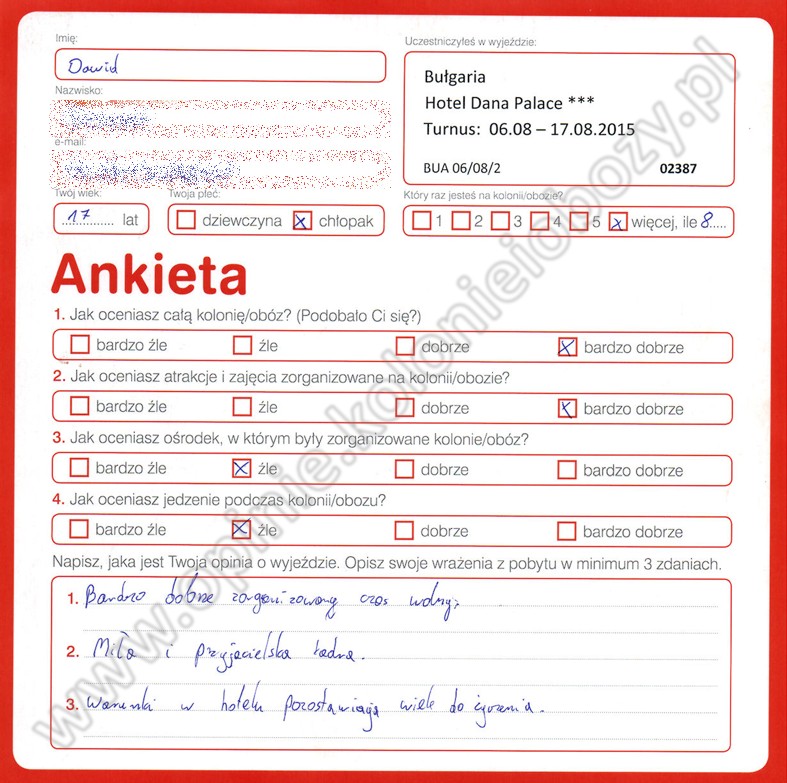 Imię:
Uczestniczyłeś w wyjeździe:
Dawid
Bułgaria
Nazwisko:
Hotel Dana Palace ***
Turnus: 06.08 – 17.08.2015
e-mail:
BUA 06/08/2 02387
Twój wiek: Twoja płeć: Który raz jesteś na kolonii/obozie?
17 lat dziewczyna x chłopak 1 2 3 4 5 x więcej, ile 8
Ankieta
1. Jak oceniasz całą kolonię/obóz? (Podobało Ci się?)
bardzo źle źle dobrze x bardzo dobrze
2. Jak oceniasz atrakcje i zajęcia zorganizowane na kolonii/obozie?
bardzo źle źle dobrze x bardzo dobrze
3. Jak oceniasz ośrodek, w którym były zorganizowane kolonie/obóz?
bardzo źle x źle dobrze bardzo dobrze
4. Jak oceniasz jedzenie podczas kolonii/obozu?
bardzo źle x źle dobrze bardzo dobrze
Napisz, jaka jest Twoja opinia o wyjeździe. Opisz swoje wrażenia z pobytu w minimum 3 zdaniach.
1. Bardzo dobrze zorganizowany czas wolny.
2. Miła i przyjacielska kadra.
3. Warunki w hotelu pozostawiają wiele do życzenia.
www.opinie.kolonieiobozy.pl